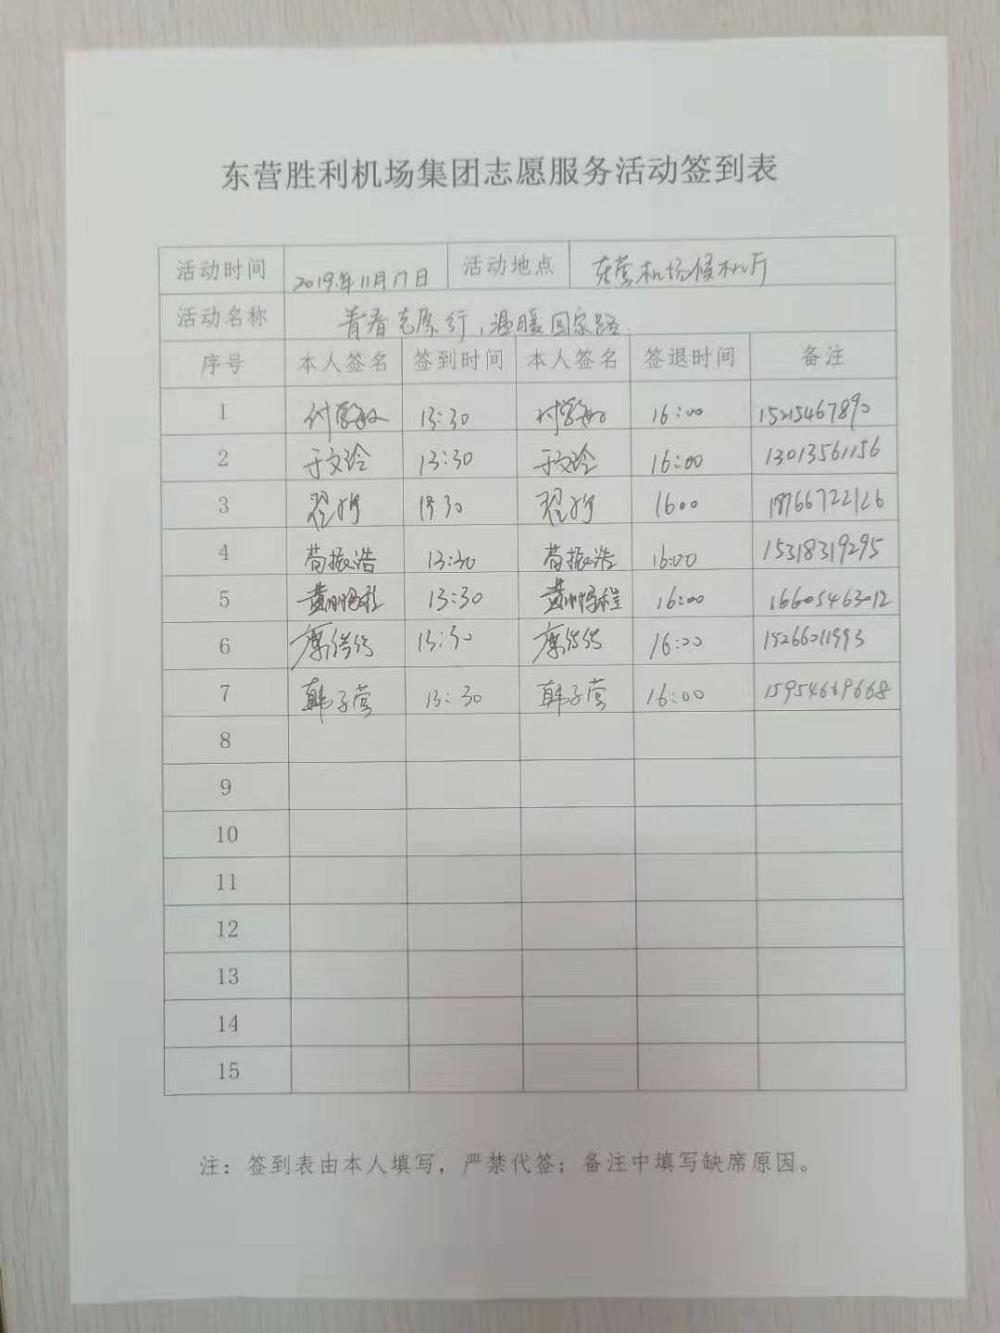 东营胜利机场集团志愿服务活动签到表
活动时间 2019年11月17日 活动地点 东营机场候机厅
活动名称 青春志愿行,温暖回家路.
序号 本人签名 签到时间 本人签名 签退时间 备注
1 13:30 16:00 15215467890
2 于文玲 13:30 于文玲 16:00 13013561156
3 13:30 1600 18766722126
4 苟振浩 13:30 苟振浩 16:00 15318319295
5 13:30 16:00 16605463012
6 13:30 16:00 15266011993
7 韩子莹 13:30 韩子莹 16:00 15954669668
8
9
10
11
12
13
14
15
注：签到表由本人填写，严禁代签；备注中填写缺席原因。